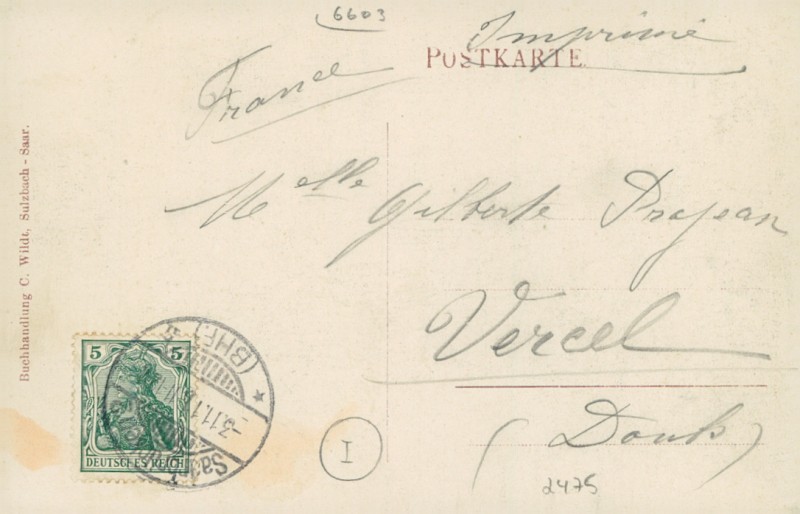 6603
Imprimé
POSTKARTE
France
Melle Gilberte Prajean
Vercel
(Doubs)
2475
I
Buchhandlung C. Wildt, Sulzbach - Saar.
5 5
DEUTSCHES REICH
(BHF.)
-3.11.1